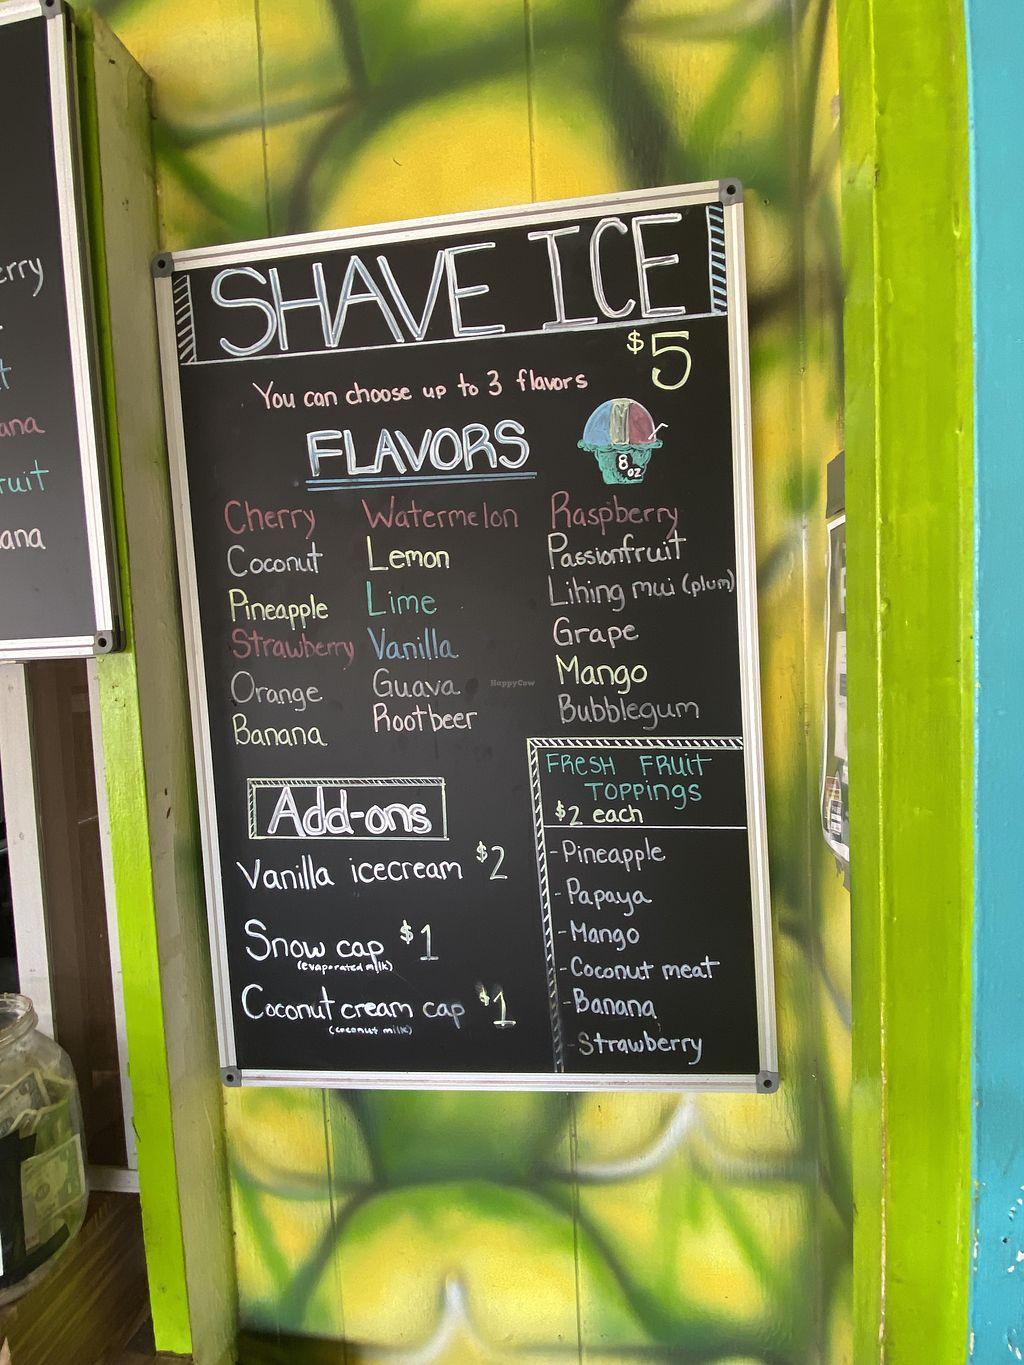 erry
t
ana
ruit
ana
SHAVE ICE
$5
You can choose up to 3 flavors
FLAVORS
8 oz
Cherry
Coconut
Pineapple
Strawberry
Orange
Banana
Watermelon
Lemon
Lime
Vanilla
Guava
Rootbeer
Raspberry
Passionfruit
Lihing mui (plum)
Grape
Mango
Bubblegum
HappyCow
Add-ons
Vanilla icecream $2
Snow cap $1
(evaporated milk)
Coconut cream cap $1
(coconut milk)
FRESH FRUIT
TOPPINGS
$2 each
- Pineapple
- Papaya
- Mango
- Coconut meat
- Banana
- Strawberry